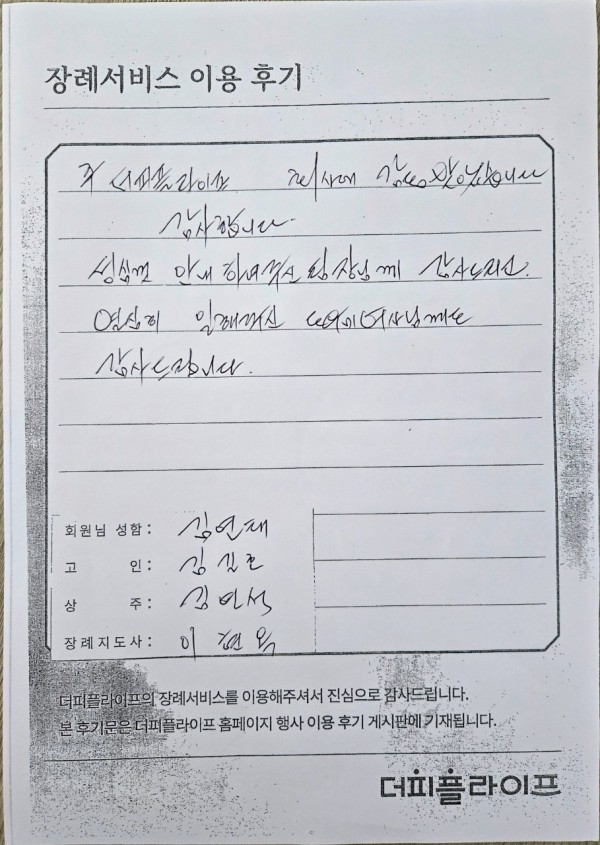 장례서비스 이용 후기
감사합니다.
안내 하여주신 팀장님께 감사드리고.
열심히 일해주신 도우미여사님께도
감사드립니다.
회원님 성함 : 김연태
고 인 : 김길호
상 주 : 김민석
장례지도사 : 이현옥
더피플라이프의 장례서비스를 이용해주셔서 진심으로 감사드립니다.
본 후기문은 더피플라이프 홈페이지 행사 이용 후기 게시판에 기재됩니다.
더피플라이프